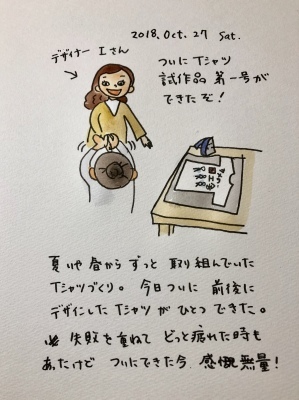 2018. Oct. 27 Sat.
デザイナー Iさん
ついに Tシャツ
試作品 第一号が
できたぞ!
夏 いや 春から ずっと 取り組んでいた
Tシャツづくり。 今日 ついに 前後に
デザインした Tシャツ が ひとつ できた。
失敗を重ねて どっと疲れた時も
あったけど ついにできた今 感慨無量!